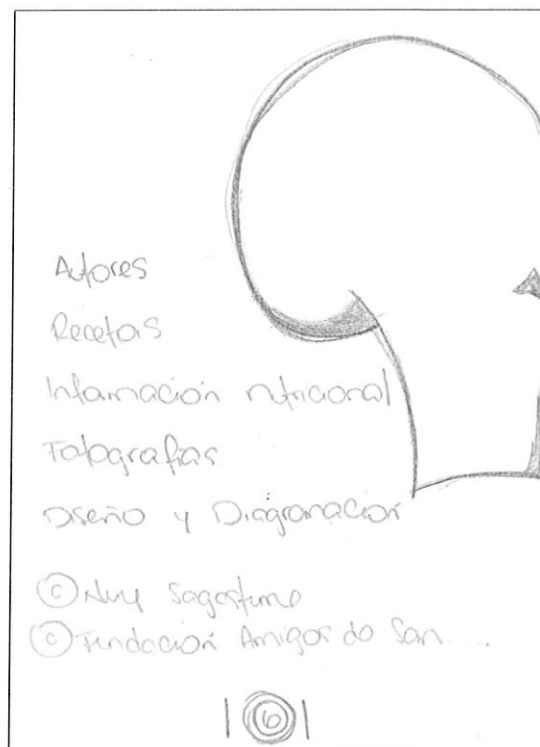 Autores
Recetas
Información nutricional
Fotografías
Diseño y Diagramación
© Sagastume
© Fundación Amigos de San....
6